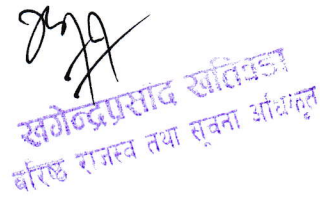 खगेन्द्रप्रसाद खतिवडा
बरिष्ठ राजस्व तथा सूचना अधिकृत